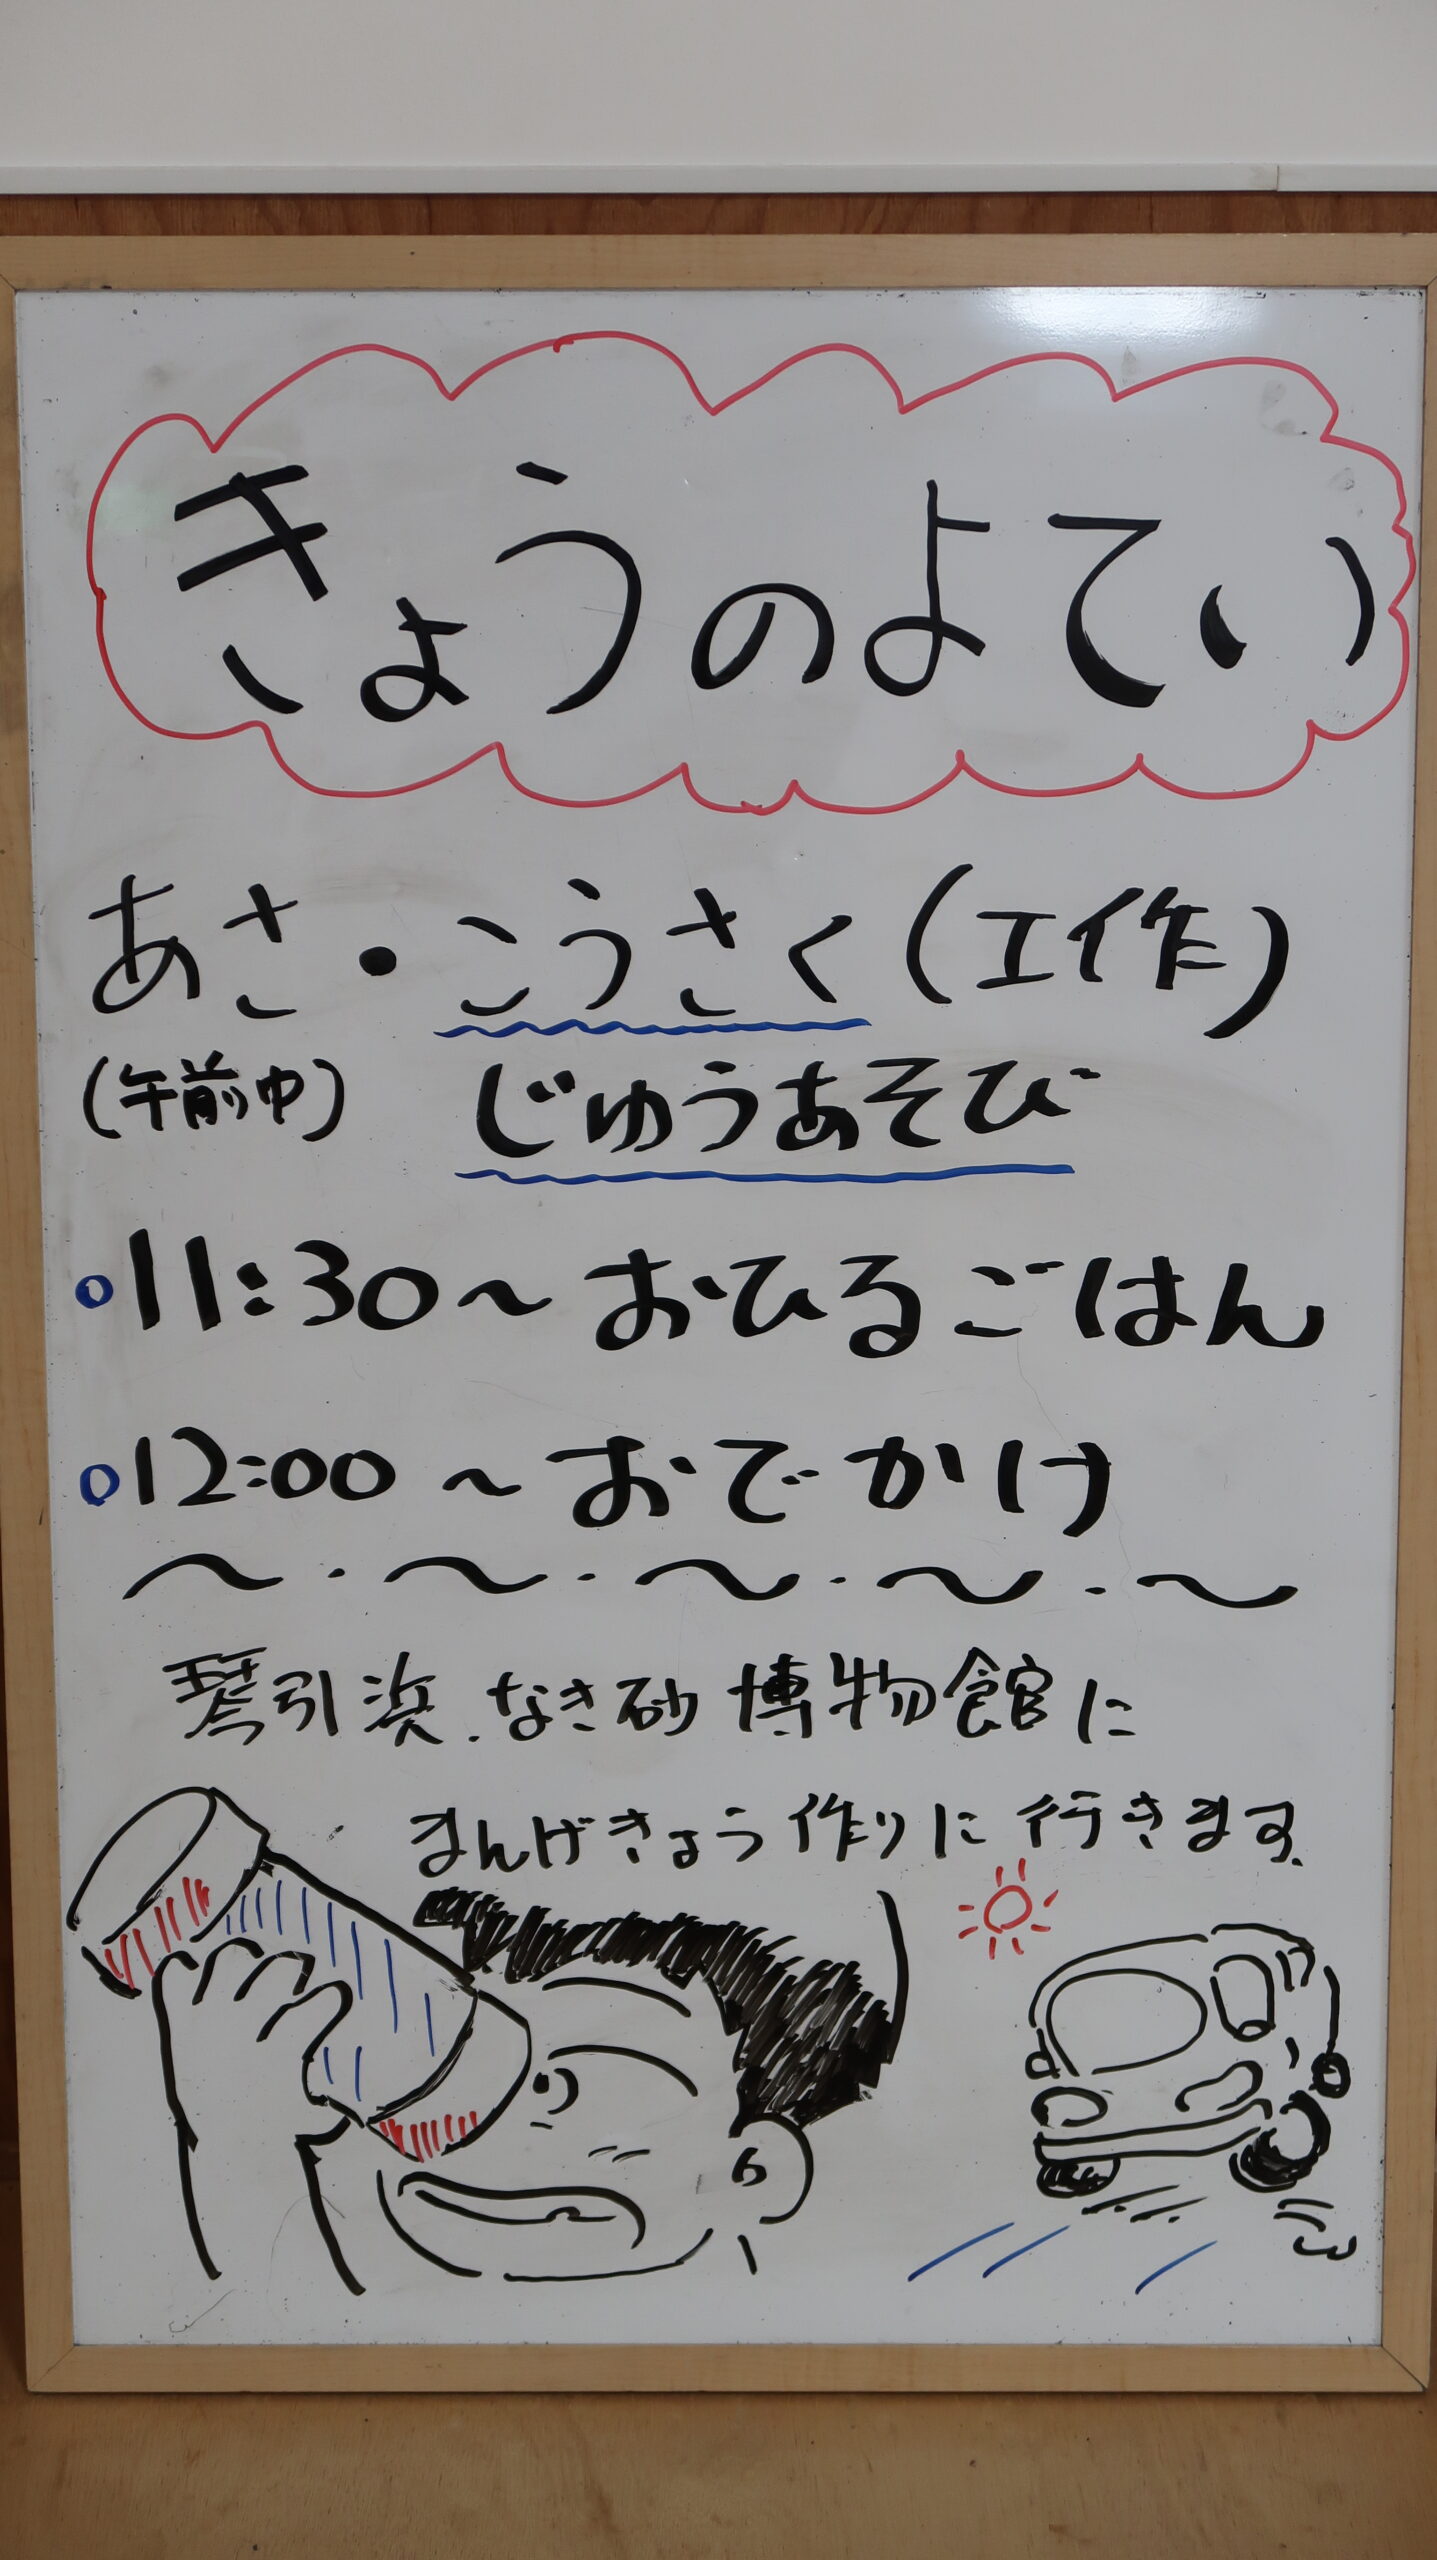 きょうのよてい
あさ・こうさく(工作)
(午前中) じゅうあそび
○11:30〜おひるごはん
○12:00〜おでかけ
〜・〜・〜・〜・〜
琴引浜.なき砂博物館に
まんげきょう作りに行きます.